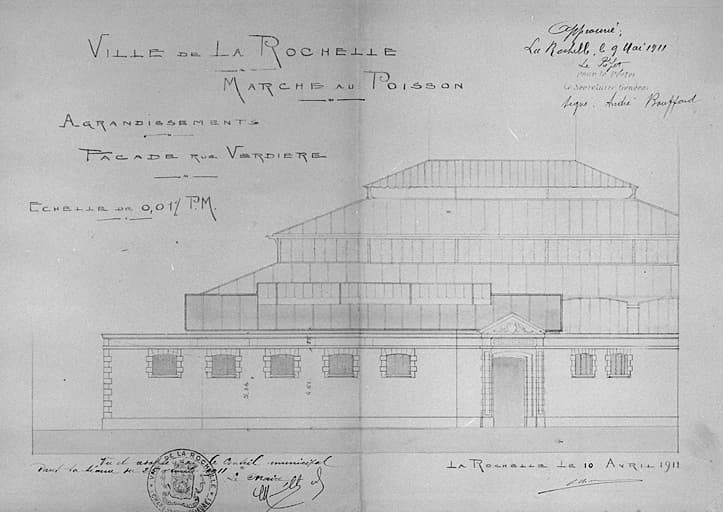 VILLE DE LA ROCHELLE
MARCHE AU POISSON
AGRANDISSEMENTS
FACADE RUE VERDIERE
ECHELLE DE 0,01 / P.M.
Approuvé;
La Rochelle, le 9 Mai 1911
Le Préfet
Pour le Préfet
Le Secrétaire Général
Signé: André Bouffard
Vu et le Conseil municipal
dans la séance du 1911
Le Maire
VILLE DE LA ROCHELLE
LA ROCHELLE LE 10 AVRIL 1911